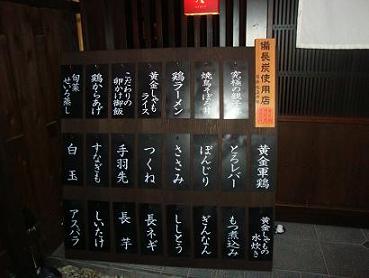 備長炭使用店
究極の親子
焼鳥そぼろ丼
鶏ラーメン
黄金しゃも
ライス
こだわりの
卵かけ御飯
鶏からあげ
旬菜
せいろ蒸し
黄金軍鶏
とろレバー
ぼんじり
ささみ
つくね
手羽先
すなぎも
白玉
黄金しゃもの
水炊き
もつ煮込み
ぎんなん
ししとう
長ネギ
長芋
しいたけ
アスパラ